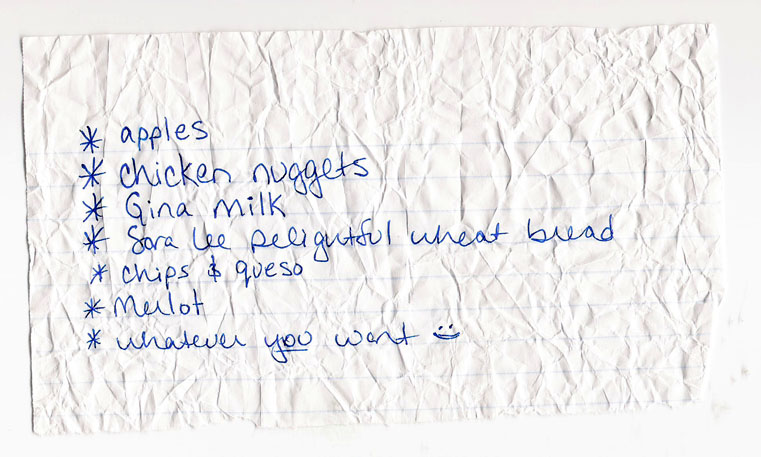 * apples
* chicken nuggets
* Gina milk
* Sara Lee Delightful wheat bread
* chips & queso
* Merlot
* whatever you want :)